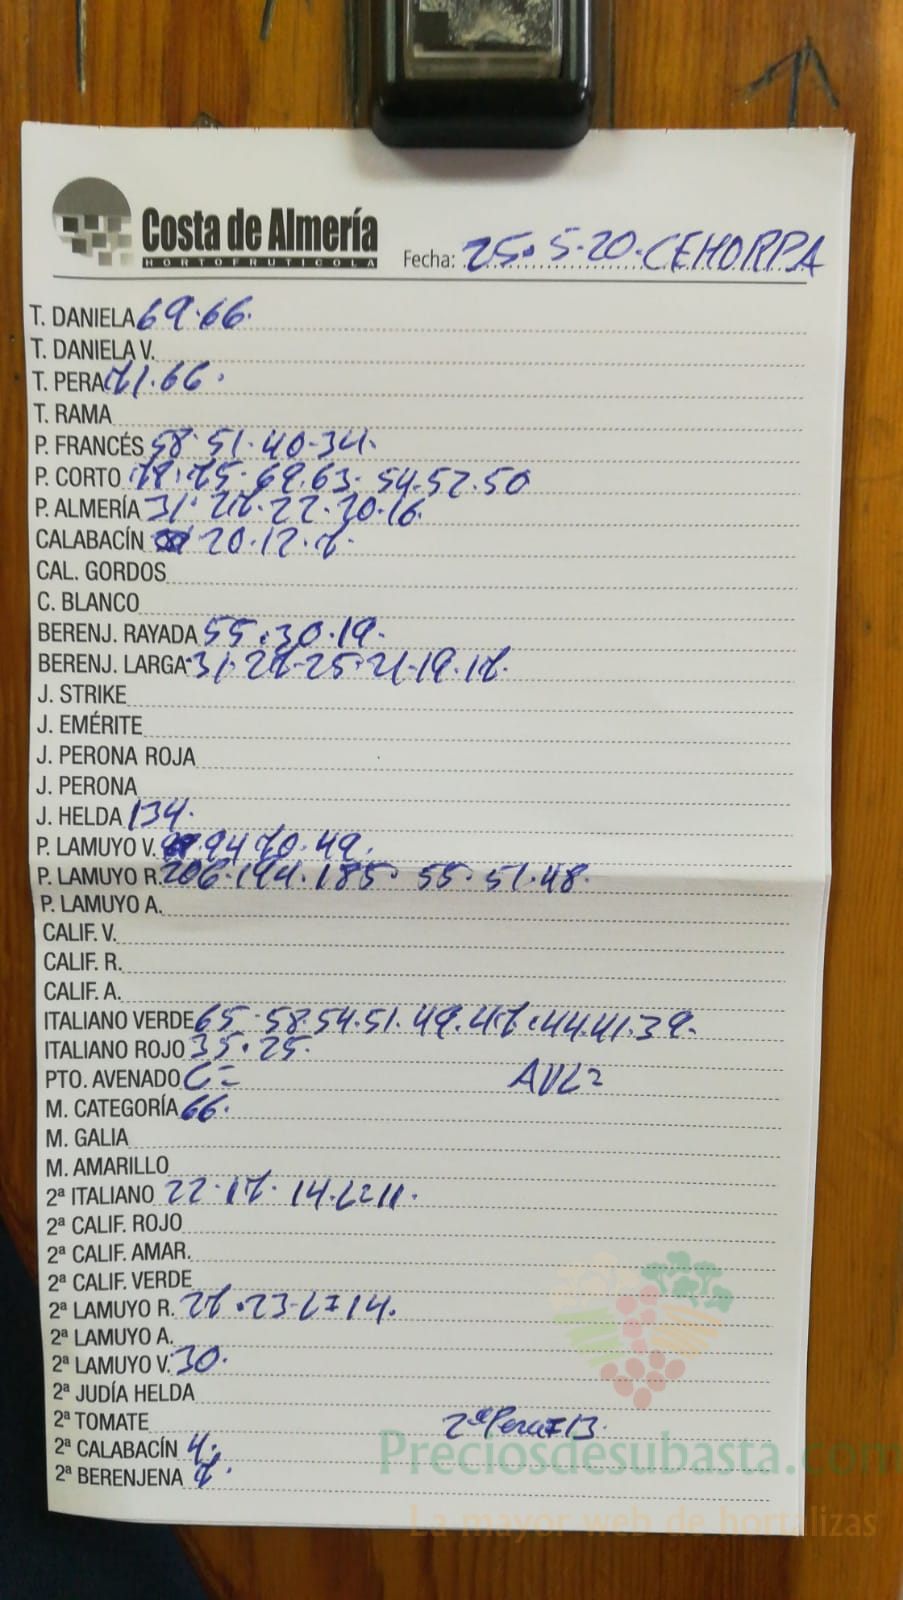 Costa de Almería
HORTOFRUTICOLA
Fecha: 25.5-20.CEHORPA
T. DANIELA 69.66.
T. DANIELA V.
T. PERA 71.66.
T. RAMA
P. FRANCÉS 58.51.40-34.
P. CORTO 75.69.63.54.52.50
P. ALMERÍA 31.27.22.20.16
CALABACÍN 20.12.7.
CAL. GORDOS
C. BLANCO
BERENJ. RAYADA 55.30.19.
BERENJ. LARGA 31.27-25.21-19.17.
J. STRIKE
J. EMÉRITE
J. PERONA ROJA
J. PERONA
J. HELDA 134.
P. LAMUYO V. 94 70.49.
P. LAMUYO R. 206.194.185. 55.51.48.
P. LAMUYO A.
CALIF. V.
CALIF. R.
CALIF. A.
ITALIANO VERDE 65.58.54.51.49.47.44.41.39.
ITALIANO ROJO 35.25.
PTO. AVENADO C= AVL=
M. CATEGORÍA 66.
M. GALIA
M. AMARILLO
2ª ITALIANO 22.17.14.L=11.
2ª CALIF. ROJO
2ª CALIF. AMAR.
2ª CALIF. VERDE
2ª LAMUYO R. 27.23-L=14.
2ª LAMUYO A.
2ª LAMUYO V. 30.
2ª JUDÍA HELDA
2ª TOMATE 2ª Pera=13.
2ª CALABACÍN 4.
2ª BERENJENA 7.
Preciosdesubasta.com
La mayor web de hortalizas